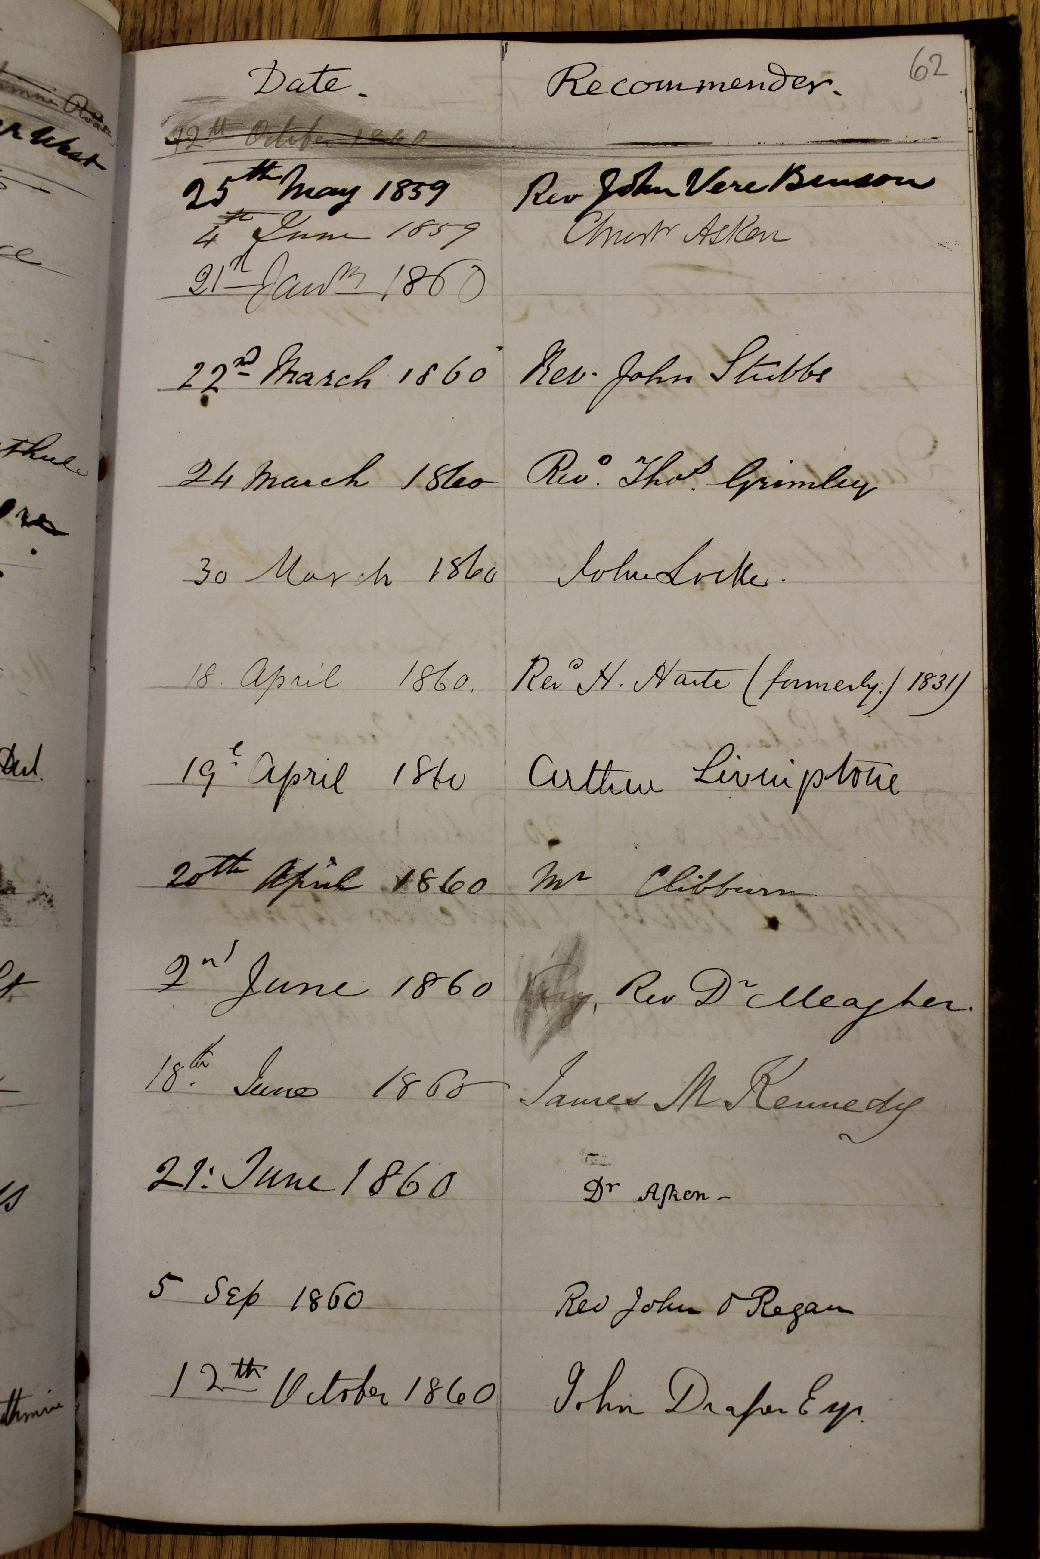 62
Date. Recommender.
12th October 1860
25th May 1859 Rev John Vere Benson
4th June 1859 Christr Asken
21st Jany 1860
22nd March 1860 Rev. John Stubbs
24 March 1860 Revd. Thos. Grimley
30 March 1860 John Locke.
18. April 1860. Revd H. Harte (formerly/1831)
19th April 1860 Arthur Livingstone
20th April 1860 Mr Clibburn
2nd June 1860 Rev Dr Meagher.
18th. June 1860 James M Kennedy
21: June 1860 Dr Asken-
5 Sep 1860 Rev John O Regan
12th October 1860 John Draper Esqr.